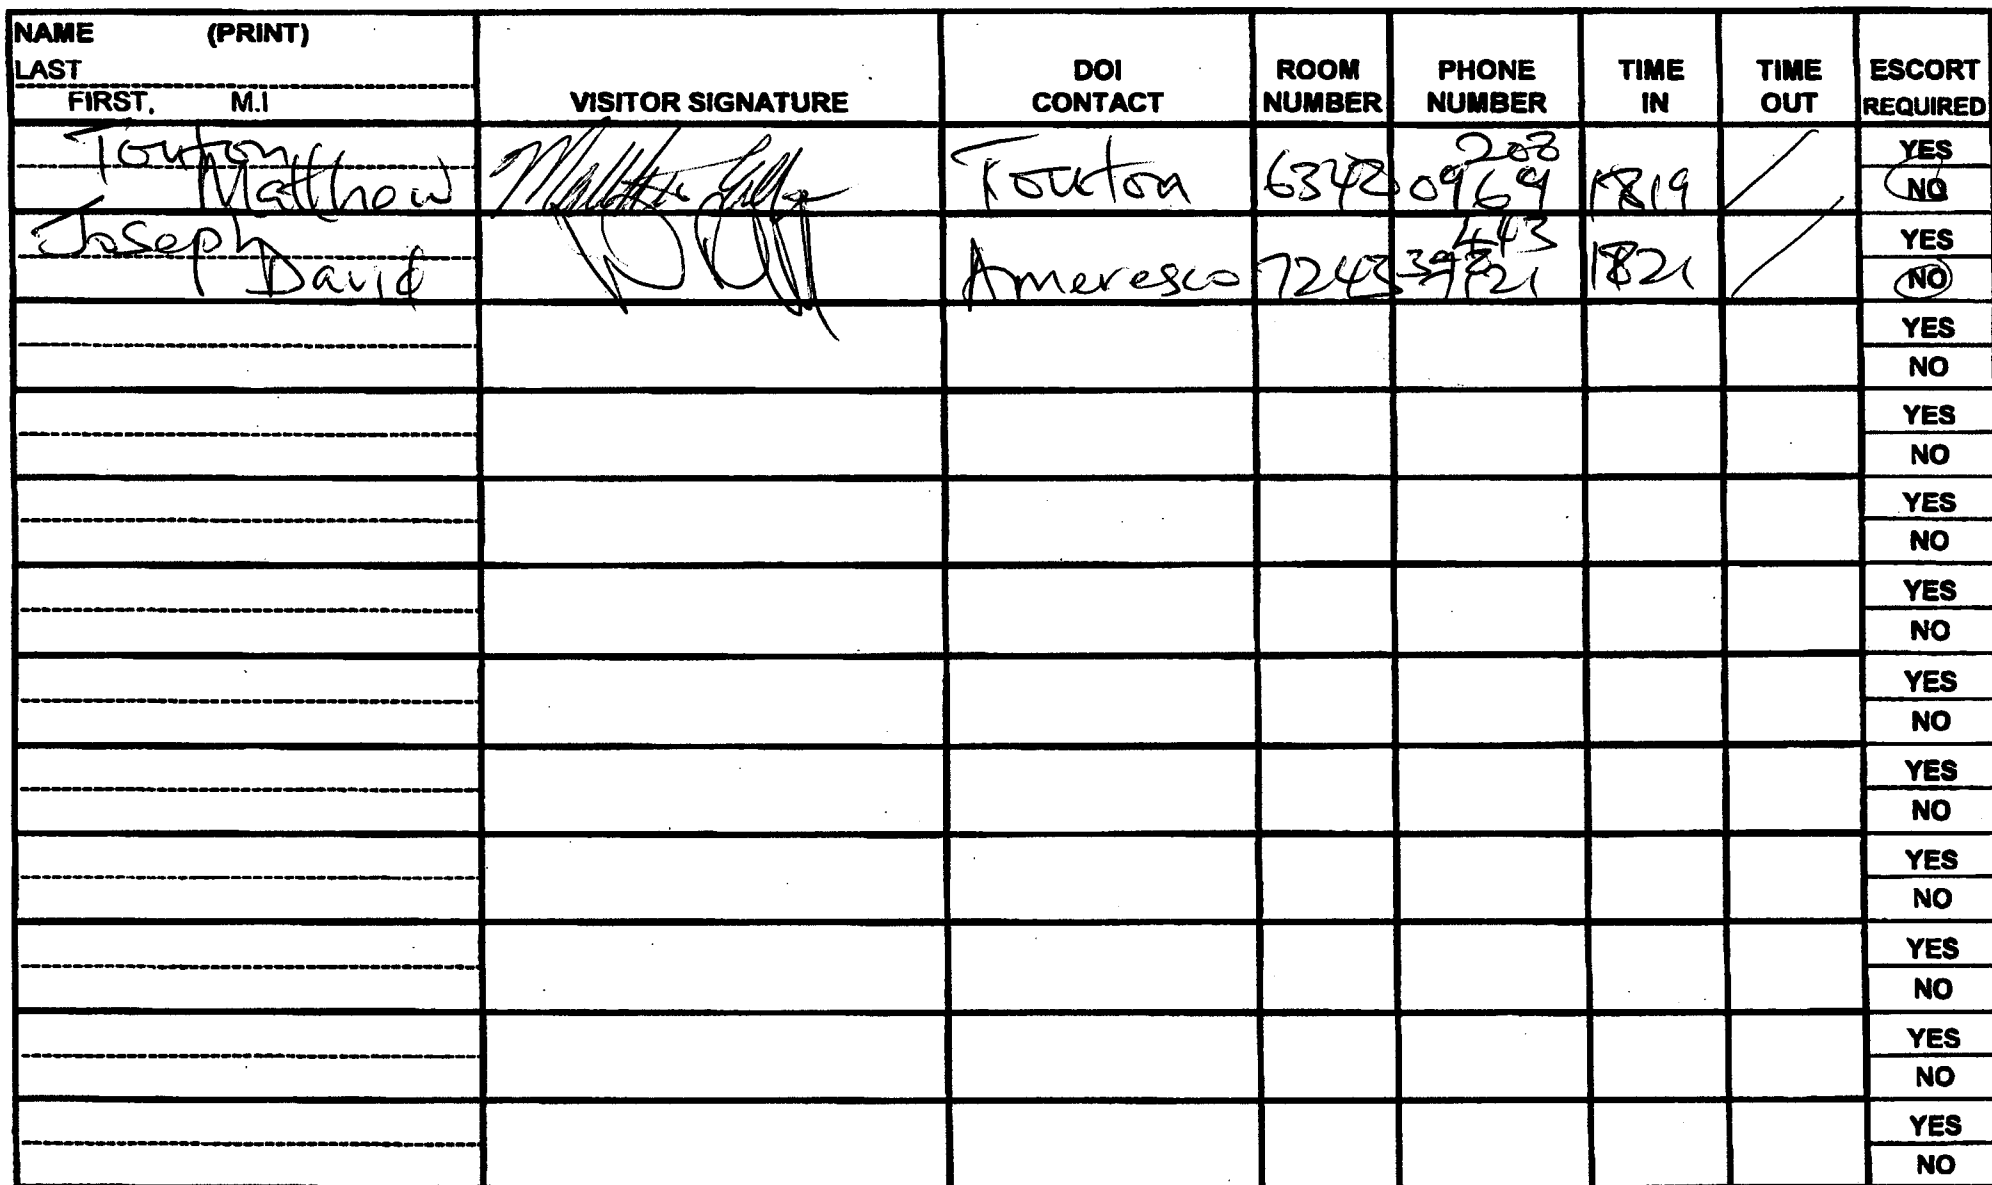 NAME (PRINT)
LAST
FIRST, M.I
VISITOR SIGNATURE
DOI CONTACT
ROOM NUMBER
PHONE NUMBER
TIME IN
TIME OUT
ESCORT REQUIRED
Touton
Matthew
Touton
6342
208
0969
1819
YES
NO
Joseph
David
Ameresco
7243
443
1821
YES
NO
YES
NO
YES
NO
YES
NO
YES
NO
YES
NO
YES
NO
YES
NO
YES
NO
YES
NO
YES
NO